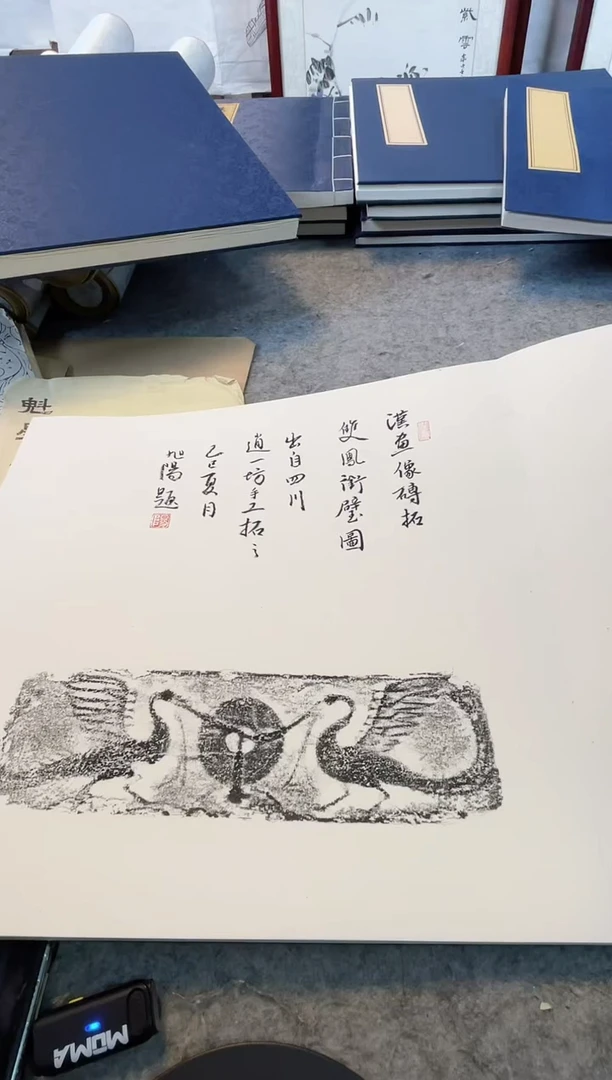 漢画像磚拓
雙鳳銜璧圖
出自四川
逍一坊手工拓之
乙巳夏月
旭陽題
紫雲
魁星
MŌMA